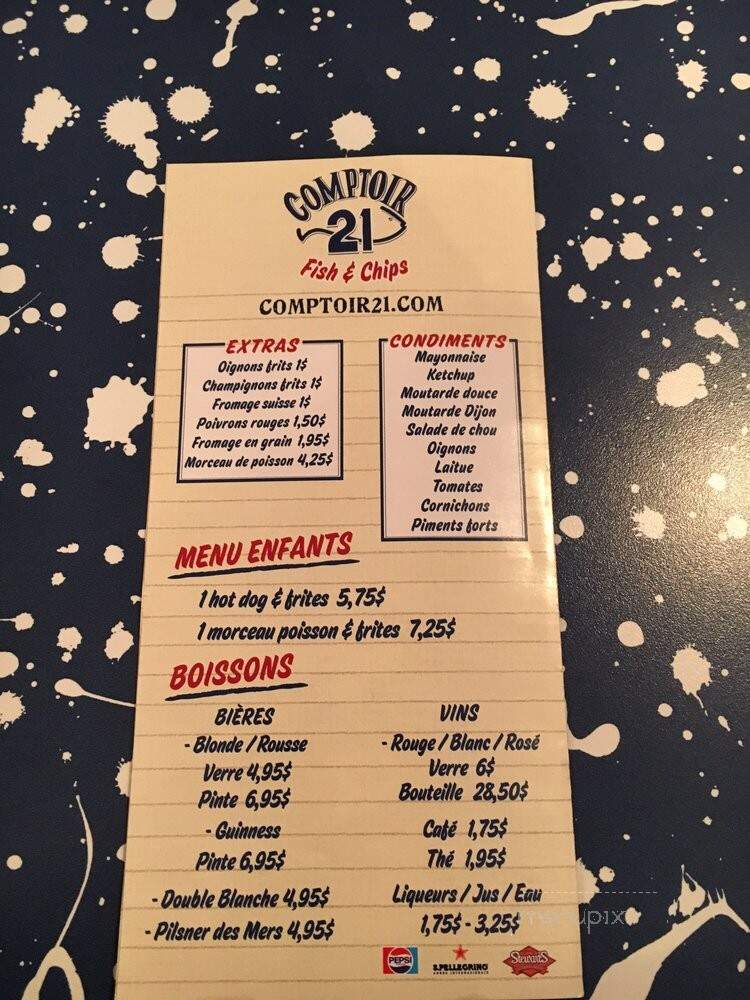 COMPTOIR
21
Fish & Chips
COMPTOIR21.COM
EXTRAS
Oignons frits 1$
Champignons frits 1$
Fromage suisse 1$
Poivrons rouges 1,50$
Fromage en grain 1,95$
Morceau de poisson 4,25$
CONDIMENTS
Mayonnaise
Ketchup
Moutarde douce
Moutarde Dijon
Salade de chou
Oignons
Laitue
Tomates
Cornichons
Piments forts
MENU ENFANTS
1 hot dog & frites 5,75$
1 morceau poisson & frites 7,25$
BOISSONS
BIÈRES
- Blonde / Rousse
Verre 4,95$
Pinte 6,95$
- Guinness
Pinte 6,95$
- Double Blanche 4,95$
- Pilsner des Mers 4,95$
VINS
- Rouge / Blanc / Rosé
Verre 6$
Bouteille 28,50$
Café 1,75$
Thé 1,95$
Liqueurs / Jus / Eau
1,75$ - 3,25$
PEPSI
S.PELLEGRINO
Stewart's
menupix